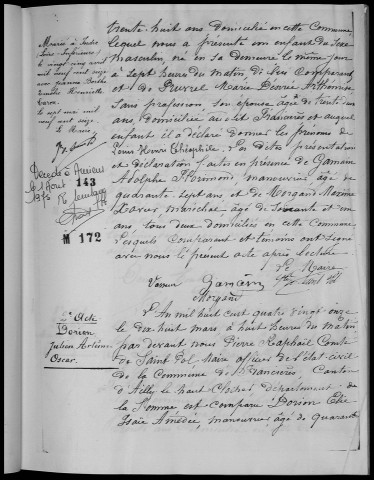 trente huit ans domicilié en cette Commune
lequel nous a présenté un enfant du sexe
masculin, né en sa demeure le même jour
à sept heures du matin, de lui Comparant
et de Marie Désirée Arthémise
sans profession, son épouse âgée de trente
ans, domiciliée au dit Francières et auquel
enfant il a déclaré donner les prénoms de
Henri Théophile. Les dites présentation
et déclaration faites en présence de Gamain
Adolphe manouvrier âgé de
quarante sept ans et de Morgand Maxime
Xavier, maréchal âgé de soixante et un
ans tous deux domiciliés en cette commune
lesquels comparant et témoins ont signé
avec nous le présent acte après lecture.
Le Maire
Vasseur Gamain
Morgand
Marié à Indre
Loire Inférieure
le vingt cinq
mil neuf cent seize
avec Jeanne Berthe
Henriette
le sept mai mil
neuf cent seize
Le Maire
Décédé à Amiens
le 1 Août 143
1976
M 172
5e Acte
Dorion
Julien Arthème
Oscar.
L'An mil huit cent quatre vingt onze
le dix huit mars à huit heures du matin
par devant nous Pierre Raphaël Comte
de Saint Pol, Maire officier de l'état civil
de la Commune de Francières, Canton
d'Ailly le haut Clocher département de
la Somme est comparu Dorion Elie
Isaïe Amédée, manouvrier, âgé de quarante